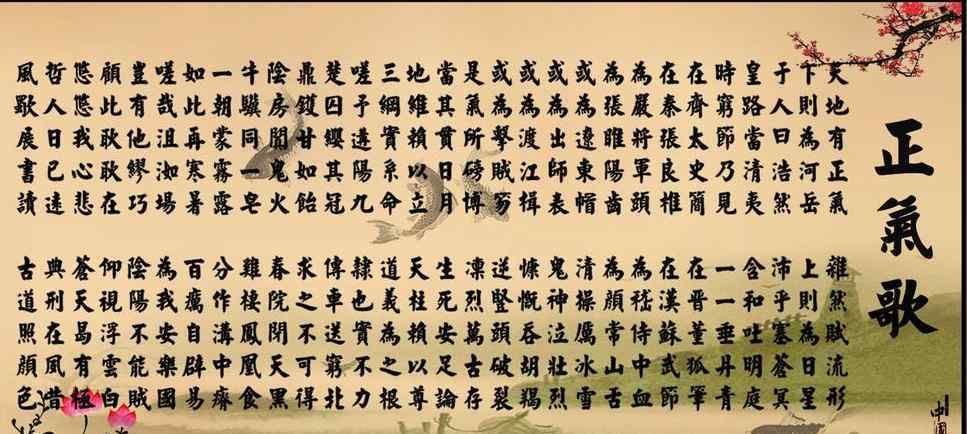 正氣歌
天地有正氣
雜然賦流形
下則為河岳
上則為日星
于人曰浩然
沛乎塞蒼冥
皇路當清夷
含和吐明庭
時窮節乃見
一一垂丹青
在齊太史簡
在晉董狐筆
在秦張良椎
在漢蘇武節
為嚴將軍頭
為嵇侍中血
為張睢陽齒
為顏常山舌
或為遼東帽
清操厲冰雪
或為出師表
鬼神泣壯烈
或為渡江楫
慷慨吞胡羯
或為擊賊笏
逆豎頭破裂
是氣所磅博
凜烈萬古存
當其貫日月
生死安足論
地維賴以立
天柱賴以尊
三綱實系命
道義為之根
嗟予遘陽九
隸也實不力
楚囚纓其冠
傳車送窮北
鼎鑊甘如飴
求之不可得
陰房闃鬼火
春院閉天黑
牛驥同一皂
雞棲鳳凰食
一朝蒙霧露
分作溝中瘠
如此再寒暑
百癘自辟易
嗟哉沮洳場
為我安樂國
豈有他繆巧
陰陽不能賊
顧此耿耿在
仰視浮雲白
悠悠我心悲
蒼天曷有極
哲人日已遠
典刑在風昔
風歟展書讀
古道照顏色
中國